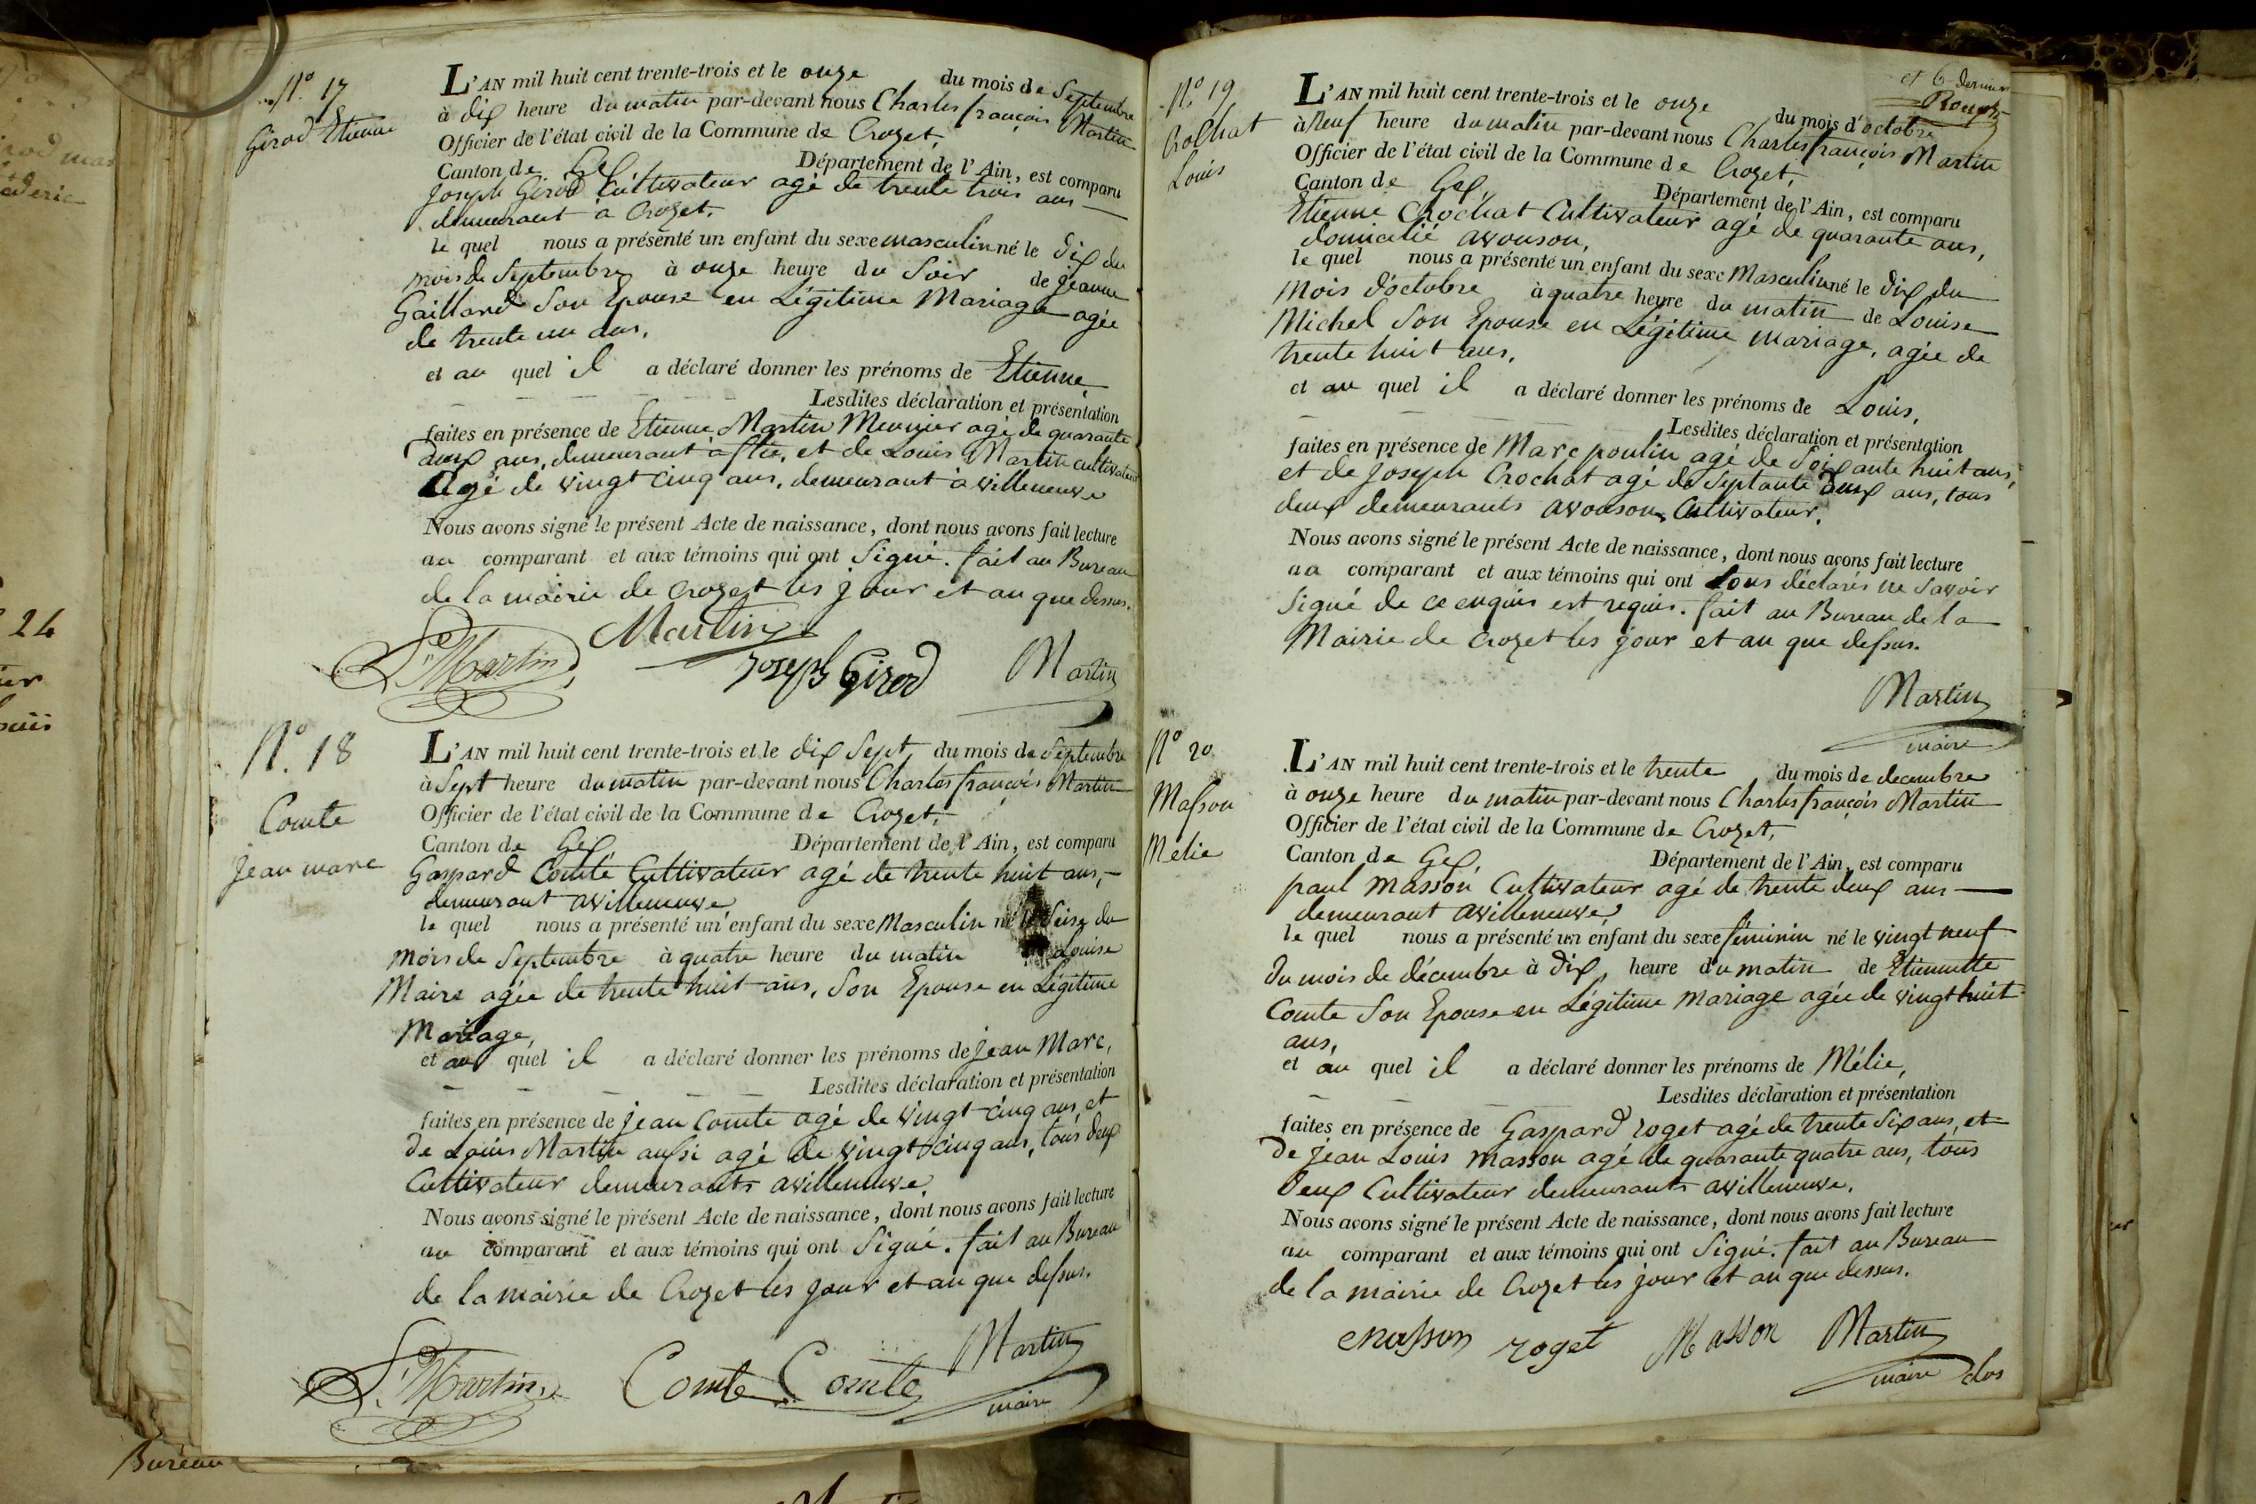 N.o 17
Girod Etienne
L'AN mil huit cent trente-trois et le onze du mois de Septembre
à dix heure du matin par-devant nous Charles françois Martin
Officier de l'état civil de la Commune de Crozet,
Canton de Gex Département de l'Ain, est comparu
Joseph Girod Cultivateur agé de trente trois ans
demeurant à Crozet,
le quel nous a présenté un enfant du sexe masculin né le dix du
mois de Septembre à onze heure du Soir de jeanne
Gaillard Son Epouse en Légitime Mariage agée
de trente un ans,
et au quel il a déclaré donner les prénoms de Etienne
Lesdites déclaration et présentation
faites en présence de Etienne Martin Meunier agé de quarante
deux ans, demeurant à flie, et de Louis Martin cultivateur
Agé de vingt cinq ans, demeurant à villeneuve
Nous avons signé le présent Acte de naissance, dont nous avons fait lecture
au comparant et aux témoins qui ont Signé. fait au Bureau
de la mairie de Crozet les jour et an que dessus.
L. Martin Martin Joseph Girod Martin
N.o 18
Comte
jean marc
L'AN mil huit cent trente-trois et le dix Sept du mois de Septembre
à Sept heure du matin par-devant nous Charles françois Martin
Officier de l'état civil de la Commune de Crozet,
Canton de Gex, Département de l'Ain, est comparu
Gaspard Comte Cultivateur agé de trente huit ans,
demeurant avilleneuve
le quel nous a présenté un enfant du sexe Masculin né le Seize du
mois de Septembre à quatre heure du matin Louise
Maire agée de trente huit ans, Son Epouse en Légitime
Mariage,
et au quel il a déclaré donner les prénoms de jean Marc,
Lesdites déclaration et présentation
faites en présence de jean Comte agé de vingt cinq ans, et
de Louis Martin aussi agé de vingt cinq ans, tous deux
Cultivateur demeurants avilleneuve.
Nous avons signé le présent Acte de naissance, dont nous avons fait lecture
au comparant et aux témoins qui ont Signé. fait au Bureau
de la mairie de Crozet les jour et an que dessus.
L. Martin Comte Comte Martin
maire
et 6 dernier
N.o 19
Crochat
Louis
L'AN mil huit cent trente-trois et le onze du mois d'octobre
à Neuf heure du matin par-devant nous Charles françois Martin
Officier de l'état civil de la Commune de Crozet,
Canton de Gex, Département de l'Ain, est comparu
Etienne Crochat Cultivateur agé de quarante ans,
domicilié avouson,
le quel nous a présenté un enfant du sexe Masculin né le dix du
Mois d'octobre à quatre heure du matin de Louise
Michel Son Epouse en Légitime mariage, agée de
trente huit ans,
et au quel il a déclaré donner les prénoms de Louis,
Lesdites déclaration et présentation
faites en présence de Marc poulin agé de Soixante huit ans,
et de joseph Crochat agé de Septante deux ans, tous
deux demeurants avouson, Cultivateur.
Nous avons signé le présent Acte de naissance, dont nous avons fait lecture
au comparant et aux témoins qui ont tous déclarés ne Savoir
Signé de ce enquis est requis. fait au Bureau de la
Mairie de Crozet les jour et an que dessus.
Martin
maire
N.o 20
Masson
Mélie
L'AN mil huit cent trente-trois et le trente du mois de decembre
à onze heure du matin par-devant nous Charles françois Martin
Officier de l'état civil de la Commune de Crozet,
Canton de Gex, Département de l'Ain, est comparu
paul masson Cultivateur agé de trente deux ans
demeurant avilleneuve,
le quel nous a présenté un enfant du sexe féminin né le vingt neuf
du mois de décembre à dix heure du matin de Etiennette
Comte Son Epouse en Légitime mariage agée de vingt huit
ans,
et au quel il a déclaré donner les prénoms de Mélie,
Lesdites déclaration et présentation
faites en présence de Gaspard roget agé de trente Six ans, et
de jean Louis masson agé de quarante quatre ans, tous
deux Cultivateur demeurants avilleneuve.
Nous avons signé le présent Acte de naissance, dont nous avons fait lecture
au comparant et aux témoins qui ont Signé. fait au Bureau
de la mairie de Crozet les jour et an que dessus.
masson roget Masson Martin
maire clos
24
Bureau